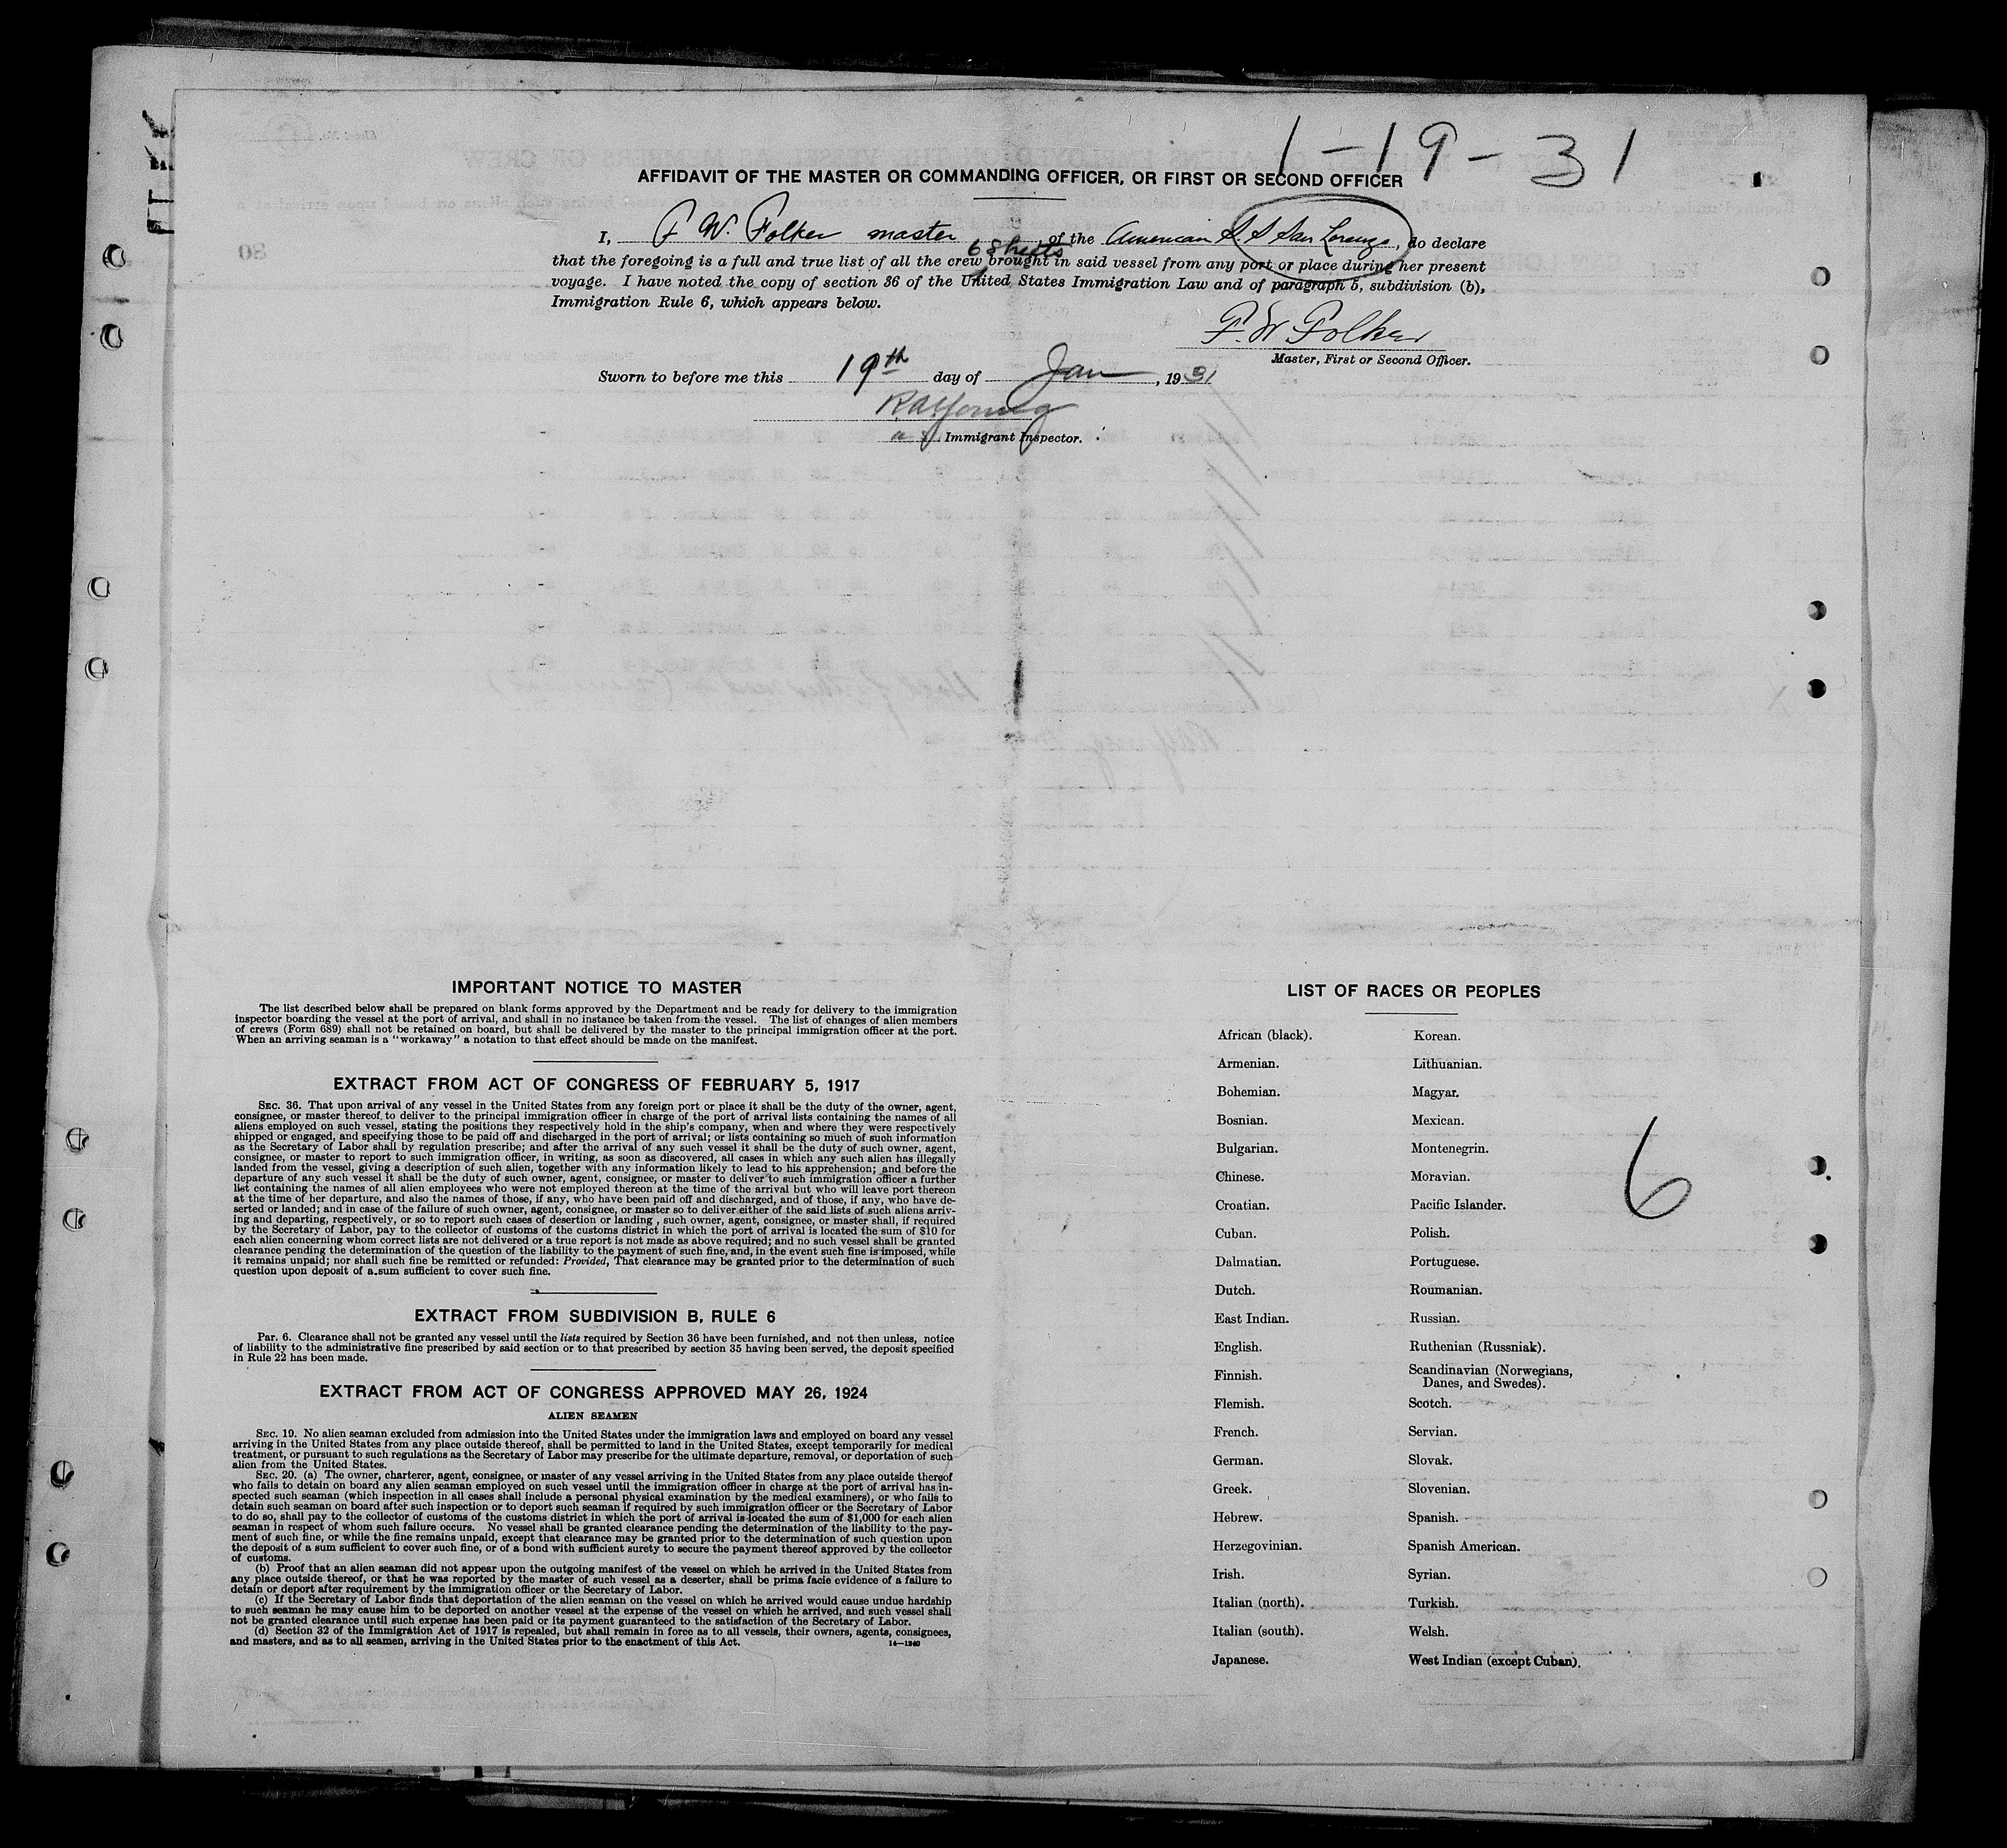 1-19-31
AFFIDAVIT OF THE MASTER OR COMMANDING OFFICER, OR FIRST OR SECOND OFFICER
I, F W. Folker master of the American S.S San Lorenzo, do declare
6 Sheets
that the foregoing is a full and true list of all the crew brought in said vessel from any port or place during her present
voyage. I have noted the copy of section 36 of the United States Immigration Law and of paragraph 5, subdivision (b),
Immigration Rule 6, which appears below.
F. W. Folker
Master, First or Second Officer.
Sworn to before me this 19th day of Jan, 1931
R A Young
Immigrant Inspector.
IMPORTANT NOTICE TO MASTER
The list described below shall be prepared on blank forms approved by the Department and be ready for delivery to the immigration
inspector boarding the vessel at the port of arrival, and shall in no instance be taken from the vessel. The list of changes of alien members
of crews (Form 689) shall not be retained on board, but shall be delivered by the master to the principal immigration officer at the port.
When an arriving seaman is a "workaway" a notation to that effect should be made on the manifest.
EXTRACT FROM ACT OF CONGRESS OF FEBRUARY 5, 1917
SEC. 36. That upon arrival of any vessel in the United States from any foreign port or place it shall be the duty of the owner, agent,
consignee, or master thereof to deliver to the principal immigration officer in charge of the port of arrival lists containing the names of all
aliens employed on such vessel, stating the positions they respectively hold in the ship's company, when and where they were respectively
shipped or engaged, and specifying those to be paid off and discharged in the port of arrival; or lists containing so much of such information
as the Secretary of Labor shall by regulation prescribe; and after the arrival of any such vessel it shall be the duty of such owner, agent,
consignee, or master to report to such immigration officer, in writing, as soon as discovered, all cases in which any such alien has illegally
landed from the vessel, giving a description of such alien, together with any information likely to lead to his apprehension; and before the
departure of any such vessel it shall be the duty of such owner, agent, consignee, or master to deliver to such immigration officer a further
list containing the names of all alien employees who were not employed thereon at the time of the arrival but who will leave port thereon
at the time of her departure, and also the names of those, if any, who have been paid off and discharged, and of those, if any, who have de-
serted or landed; and in case of the failure of such owner, agent, consignee, or master so to deliver either of the said lists of such aliens arriv-
ing and departing, respectively, or so to report such cases of desertion or landing, such owner, agent, consignee, or master shall, if required
by the Secretary of Labor, pay to the collector of customs of the customs district in which the port of arrival is located the sum of $10 for
each alien concerning whom correct lists are not delivered or a true report is not made as above required; and no such vessel shall be granted
clearance pending the determination of the question of the liability to the payment of such fine, and, in the event such fine is imposed, while
it remains unpaid; nor shall such fine be remitted or refunded: Provided, That clearance may be granted prior to the determination of such
question upon deposit of a sum sufficient to cover such fine.
EXTRACT FROM SUBDIVISION B, RULE 6
Par. 6. Clearance shall not be granted any vessel until the lists required by Section 36 have been furnished, and not then unless, notice
of liability to the administrative fine prescribed by said section or to that prescribed by section 35 having been served, the deposit specified
in Rule 22 has been made.
EXTRACT FROM ACT OF CONGRESS APPROVED MAY 26, 1924
ALIEN SEAMEN
SEC. 19. No alien seaman excluded from admission into the United States under the immigration laws and employed on board any vessel
arriving in the United States from any place outside thereof, shall be permitted to land in the United States, except temporarily for medical
treatment, or pursuant to such regulations as the Secretary of Labor may prescribe for the ultimate departure, removal, or deportation of such
alien from the United States.
SEC. 20. (a) The owner, charterer, agent, consignee, or master of any vessel arriving in the United States from any place outside thereof
who fails to detain on board any alien seaman employed on such vessel until the immigration officer in charge at the port of arrival has in-
spected such seaman (which inspection in all cases shall include a personal physical examination by the medical examiners), or who fails to
detain such seaman on board after such inspection or to deport such seaman if required by such immigration officer or the Secretary of Labor
to do so, shall pay to the collector of customs of the customs district in which the port of arrival is located the sum of $1,000 for each alien
seaman in respect of whom such failure occurs. No vessel shall be granted clearance pending the determination of the liability to the pay-
ment of such fine, or while the fine remains unpaid, except that clearance may be granted prior to the determination of such question upon
the deposit of a sum sufficient to cover such fine, or of a bond with sufficient surety to secure the payment thereof approved by the collector
of customs.
(b) Proof that an alien seaman did not appear upon the outgoing manifest of the vessel on which he arrived in the United States from
any place outside thereof, or that he was reported by the master of such vessel as a deserter, shall be prima facie evidence of a failure to
detain or deport after requirement by the immigration officer or the Secretary of Labor.
(c) If the Secretary of Labor finds that deportation of the alien seaman on the vessel on which he arrived would cause undue hardship
to such seaman he may cause him to be deported on another vessel at the expense of the vessel on which he arrived, and such vessel shall
not be granted clearance until such expense has been paid or its payment guaranteed to the satisfaction of the Secretary of Labor.
(d) Section 32 of the Immigration Act of 1917 is repealed, but shall remain in force as to all vessels, their owners, agents, consignees,
and masters, and as to all seamen, arriving in the United States prior to the enactment of this Act.
14—1240
LIST OF RACES OR PEOPLES
African (black). Korean.
Armenian. Lithuanian.
Bohemian. Magyar.
Bosnian. Mexican.
Bulgarian. Montenegrin.
Chinese. Moravian.
Croatian. Pacific Islander.
Cuban. Polish.
Dalmatian. Portuguese.
Dutch. Roumanian.
East Indian. Russian.
English. Ruthenian (Russniak).
Finnish. Scandinavian (Norwegians,
Danes, and Swedes).
Flemish. Scotch.
French. Servian.
German. Slovak.
Greek. Slovenian.
Hebrew. Spanish.
Herzegovinian. Spanish American.
Irish. Syrian.
Italian (north). Turkish.
Italian (south). Welsh.
Japanese. West Indian (except Cuban).
6